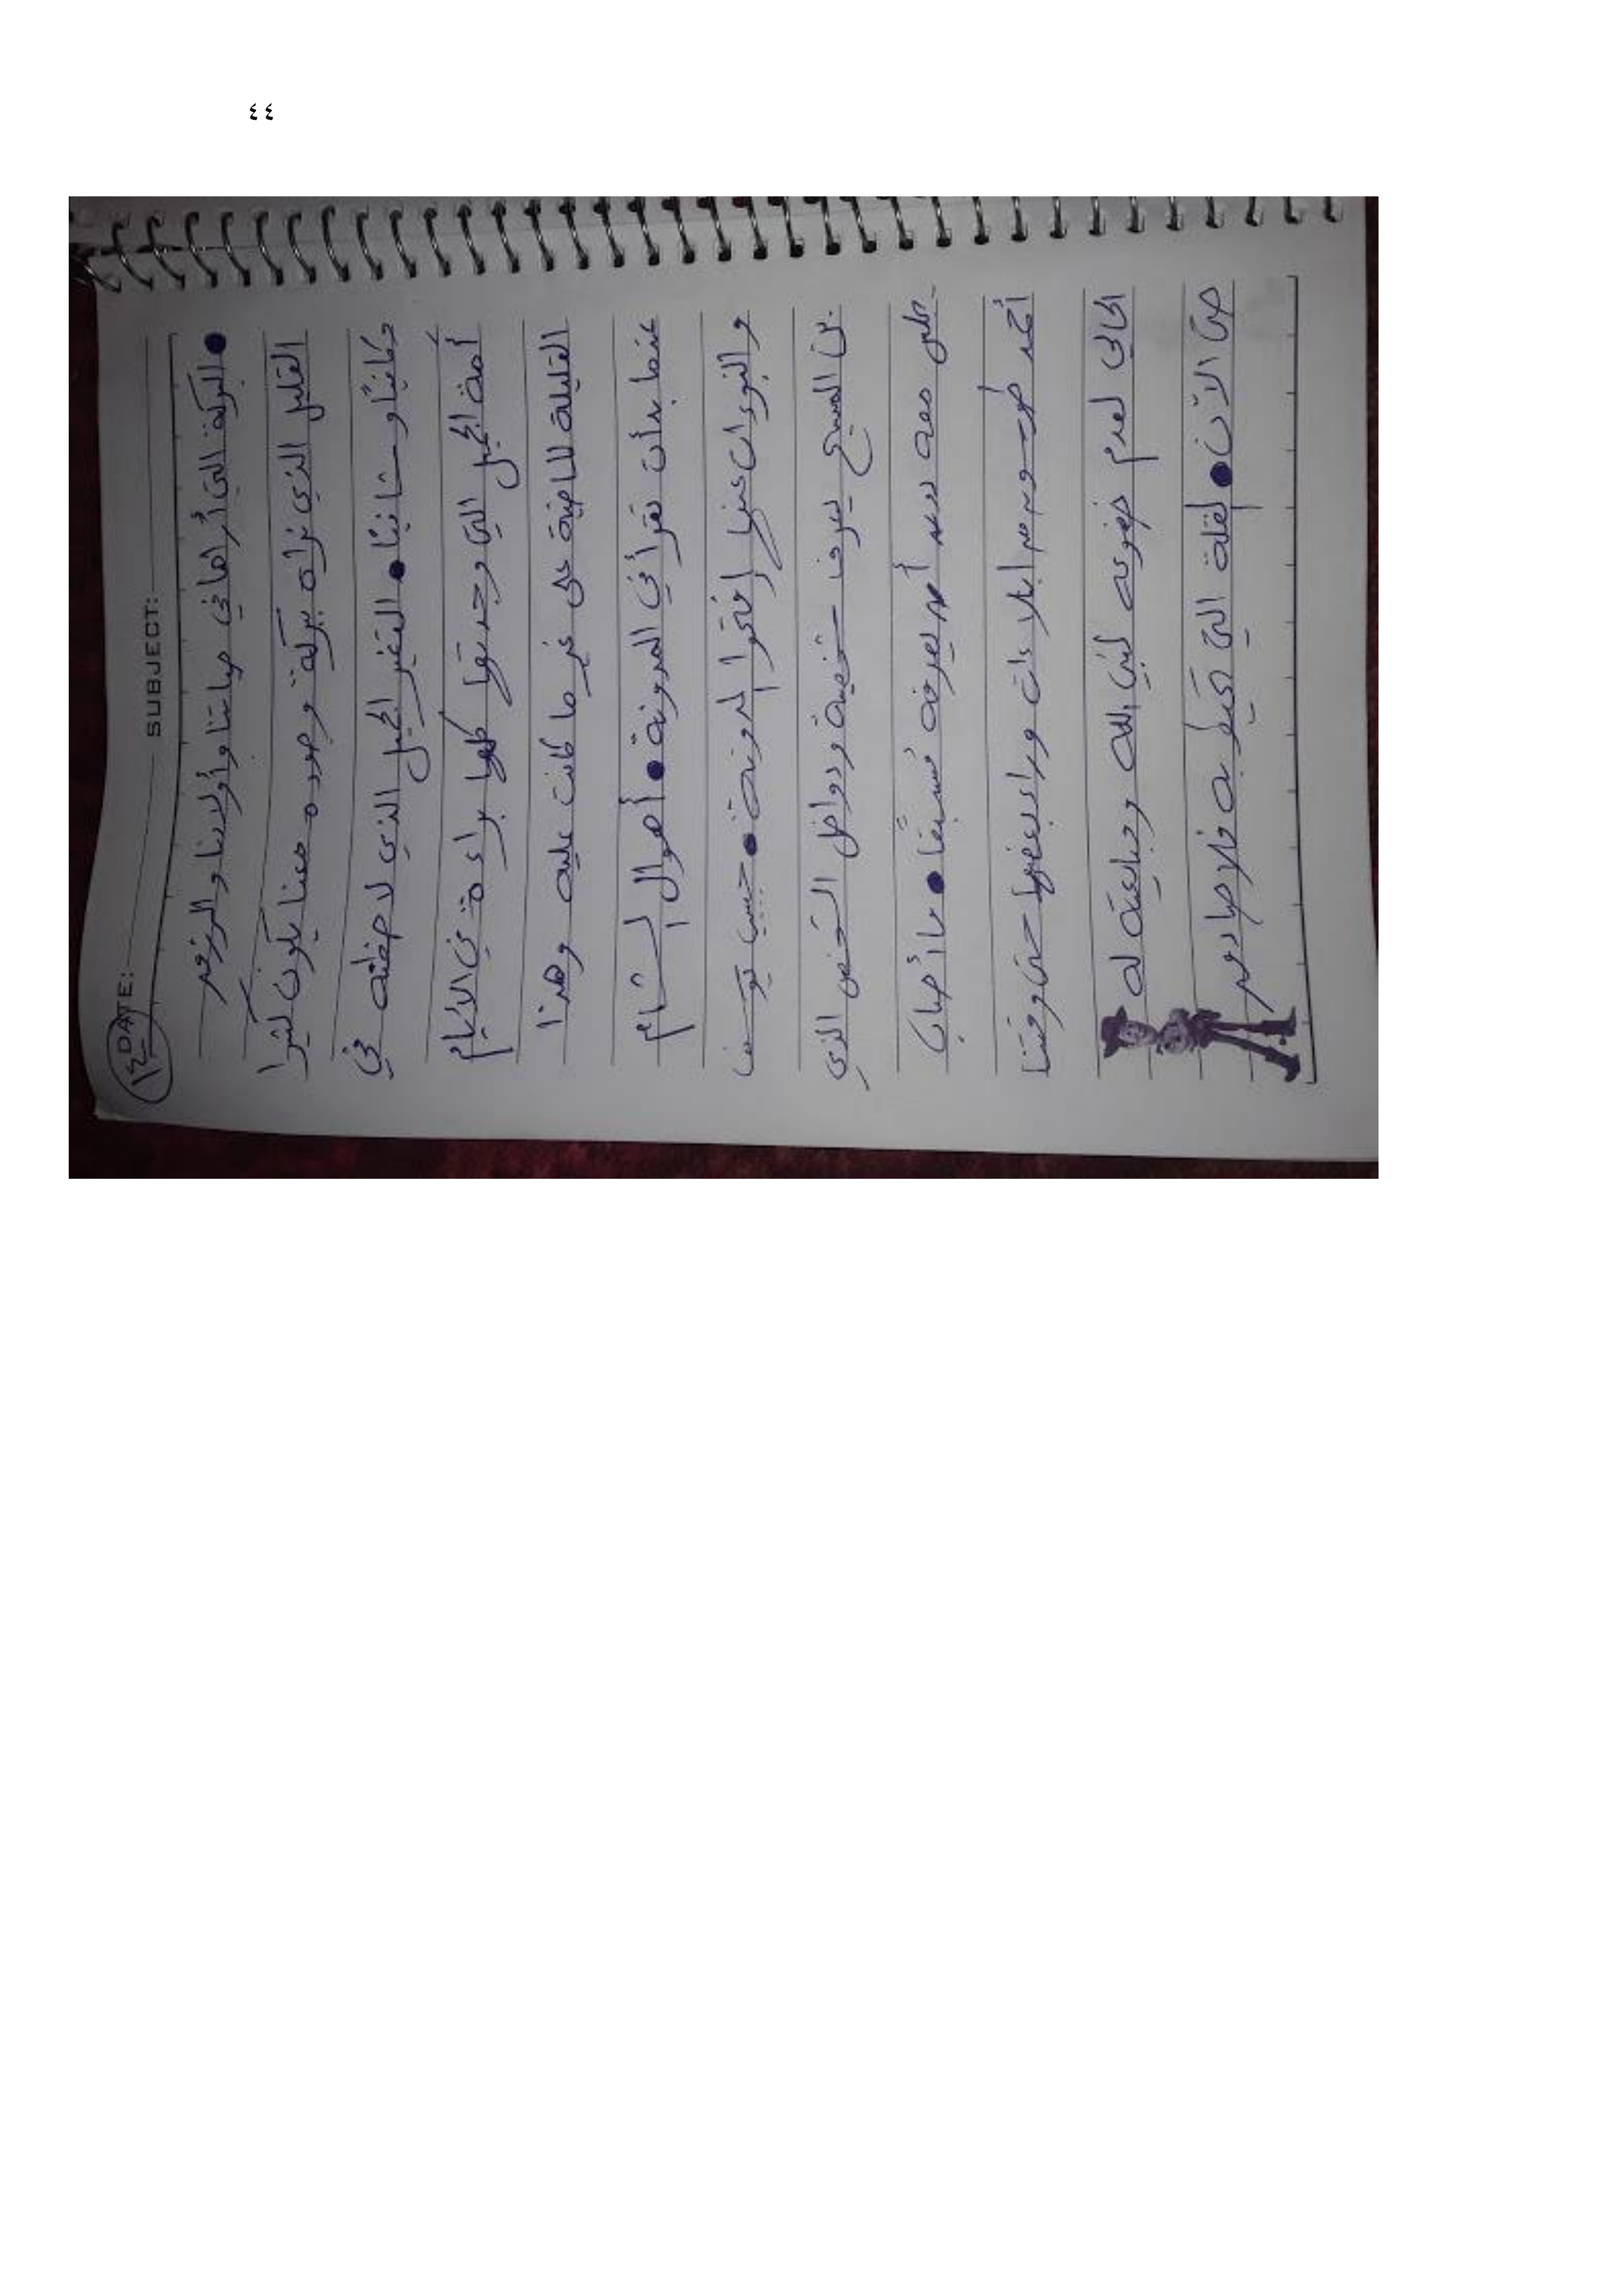 ٤٤
DATE: SUBJECT:
١٤
● البركة التي أراها في حياتنا وأولادنا والرزق
القليل الذي نراه ببركة وجوده معنا يكون كثيرا
وكافيًا و ● التغير الجميل الذي لاحظته في
أمة الجيل التي وجدتها كلها براءة في الأيام
القليلة الماضية على غير ما كانت عليه وهذا
عندما بدأت تقرأ في المدونة ● أهوال الشام
والنبوءات عنها إفتحوا المدونة ●
بن المسيح يعرف شخصية ودواخل الشخص الذي
جلس معه بدون أن يعرفه مسبقا ● ما أصاب
أحمد من ابتلاءات وراء بعضها حتى وقتنا
الحالي لعدم خضوعه لنبي الله ومبايعته له
حتى الآن ● التي تحيط به